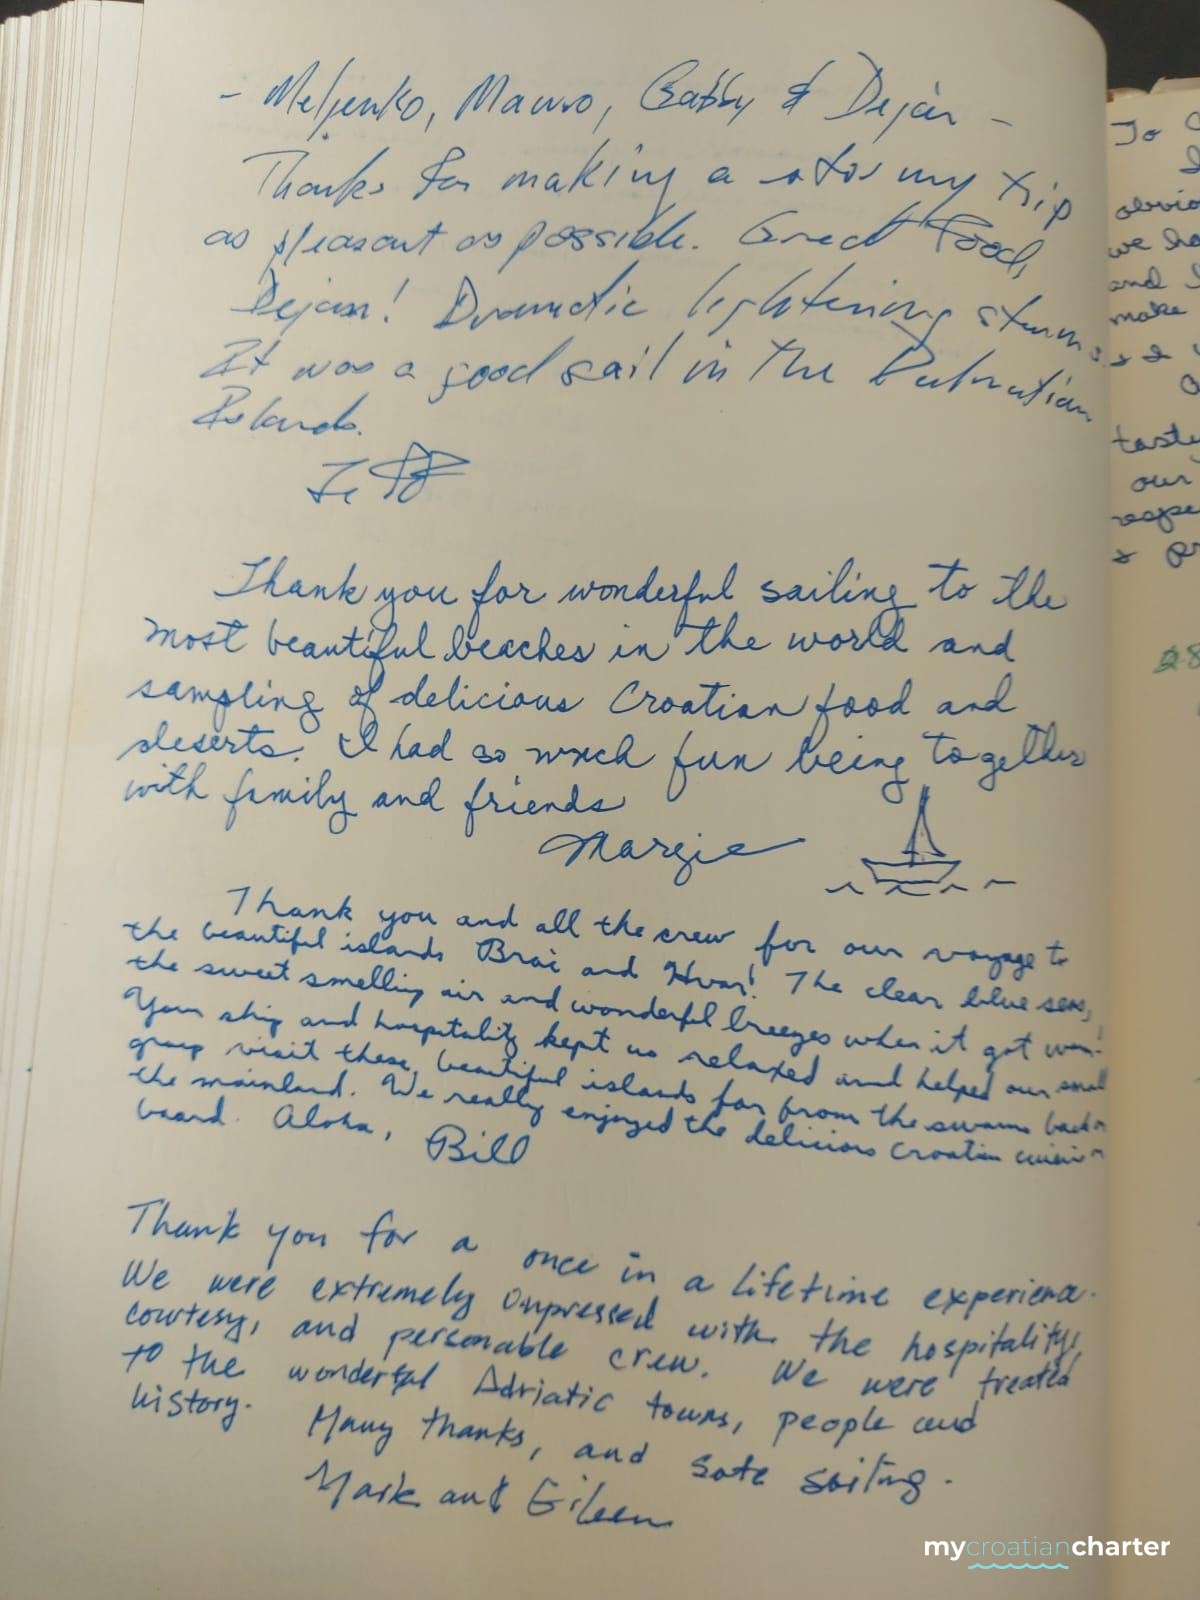 - Meljenko, Mauro, Gabby & Dejan -
Thanks for making a my trip
as pleasant as possible. Great Food,
Dejan! Dramatic lightening storms.
It was a good sail in the Dalmatian
Islands.
Jeff
Thank you for wonderful sailing to the
most beautiful beaches in the world and
sampling of delicious Croatian food and
deserts. I had so much fun being together
with family and friends
Margie
Thank you and all the crew for our voyage to
the beautiful islands Brac and Hvar! The clear blue seas,
the sweet smelling air and wonderful breezes when it got warm.
Your ship and hospitality kept us relaxed and helped our small
group visit these beautiful islands far from the swarms back on
the mainland. We really enjoyed the delicious Croatian cuisine on
board. Aloha, Bill
Thank you for a once in a lifetime experience.
We were extremely impressed with the hospitality,
courtesy, and personable crew. We were treated
to the wonderful Adriatic towns, people and
history.
Many thanks, and safe sailing.
Mark and Eileen
To
obvio
we ha
and I
make
tasty
our
respe
& pr
mycroatiancharter